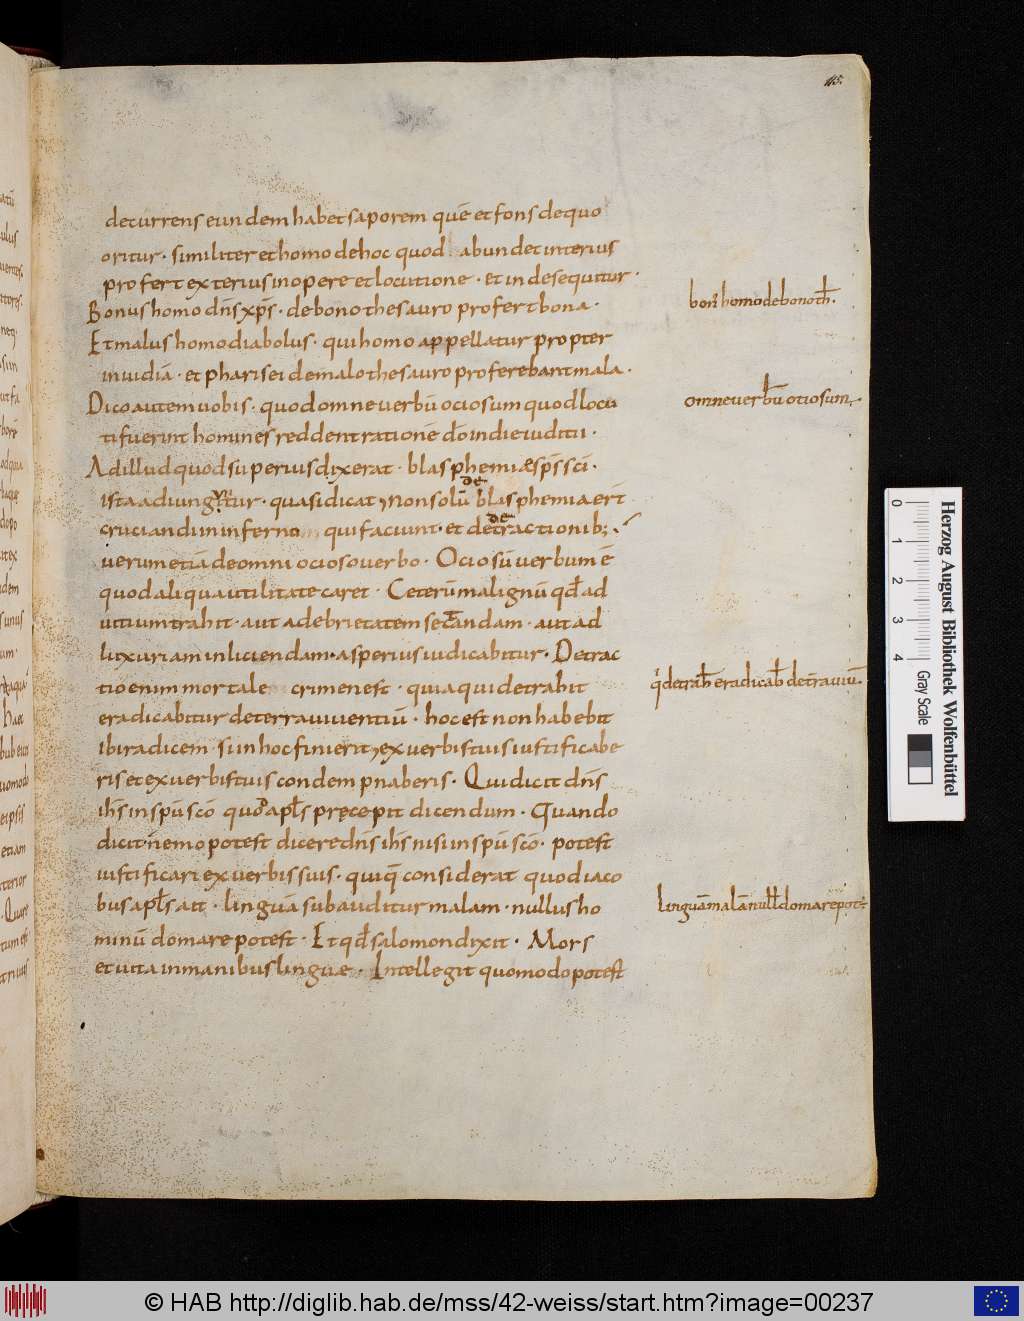 115.
decurrens eundem habet saporem quē et fons de quo
oritur · similiter et homo de hoc quod abundet interius
profert exterius in opere et locutione · et inde sequitur ·
Bonus homo dn̄s xp̄s · de bono thesauro profert bona ·
Et malus homo diabolus · qui homo appellatur propter
inuidiā · et pharisei de malo thesauro proferebant mala ·
Dico autem uobis · quod omne uerbū ociosum quod locu
ti fuerint homines reddent rationē do in die iuditii ·
Ad illud quod superius dixerat · blasphemiæ sp̄s sc̄i ·
ista adiung tur · quasi dicat, non solū de blasphemia er̄t
cruciandi in inferno qui faciunt · et de detractionib;
uerum etiā de omni ocioso uerbo · Ociosū uerbum ē
quod aliqua utilitate caret · Ceterū malignū qd̄ ad
uitium trahit · aut ad ebrietatem secandam · aut ad
luxuriam inliciendam · asperius iudicabitur · Detrac
tio enim mortale crimen est · quia qui detrahit
eradicabitur de terra uiuentiū · hoc est non habebit
ibi radicem si in hoc finierit, ex uerbis tuis iustificabe
ris et ex uerbis tuis condempnaberis · Qui dicit dn̄s
ih̄s in sp̄u scō quod apl̄s precepit dicendum · Quando
dicit nemo potest dicere dn̄s ih̄s nisi in sp̄u scō · potest
iustificari ex uerbis suis · quiq; considerat quod iaco
bus apl̄s ait · linguā subauditur malam · nullus ho
minū domare potest · Et qd̄ salomon dixit · Mors
et uita in manibus linguæ · Intellegit quomodo potest
bon homo de bono th̄.
omne uerbū otiosum
q̇ detrah̄ eradicab̄ de t̄ra uiuū.
linguā malā null̄ domare pot̄
Herzog August Bibliothek Wolfenbüttel
0 1 2 3 4
Gray Scale
© HAB http://diglib.hab.de/mss/42-weiss/start.htm?image=00237